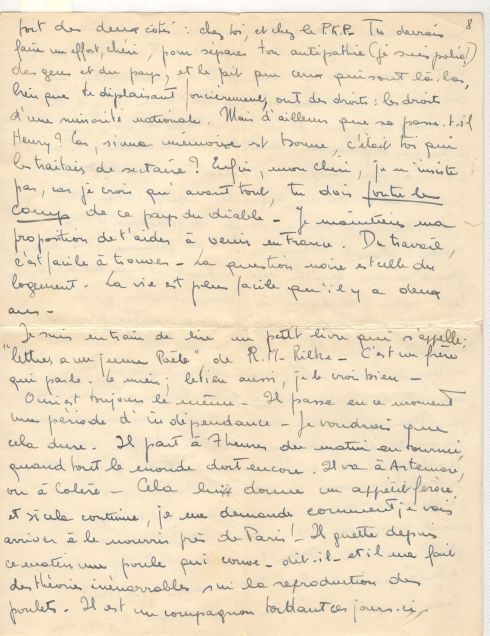 8
tort des deux côtés : chez toi, et chez le P.K.P. Tu devrais
faire un effort, chéri, pour séparer ton antipathie (je suis polie!)
des gens et du pays, et le fait que ceux qui sont là-bas,
bien que te déplaisant foncièrement, ont des droits : les droits
d'une minorité nationale. Mais d'ailleurs que se passe-t-il
Henry? Car, si ma mémoire est bonne, c'était toi qui
les traitais de sectaire? Enfin, mon chéri, je n'insiste
pas, car je crois qu'avant tout, tu dois foutre le
camp de ce pays du diable - Je maintiens ma
proposition de t'aider à venir en France. Du travail,
c'est facile à trouver - La question noire est celle du
logement. La vie est plus facile qu'il y a deux
ans -
Je suis en train de lire un petit livre qui s'appelle:
"lettres à un jeune Poète" de R.M. Rilke - C'est un frère
qui parle - le mien; le tien aussi, je le crois bien -
est toujours le même - Il passe en ce moment
une période d'indépendance - Je voudrais que
cela dure. Il part à 7 heures du matin en tournée,
quand tout le monde dort encore. Il va à Artemare,
ou à Colère - Cela lui donne un appétit féroce,
et si cela continue, je me demande comment je vais
arriver à le nourrir près de Paris! - Il guette depuis
ce matin une poule qui couve - dit-il - et il me fait
des théories inénarrables sur la reproduction des
poulets - Il est un compagnon tordant ces jours-ci,